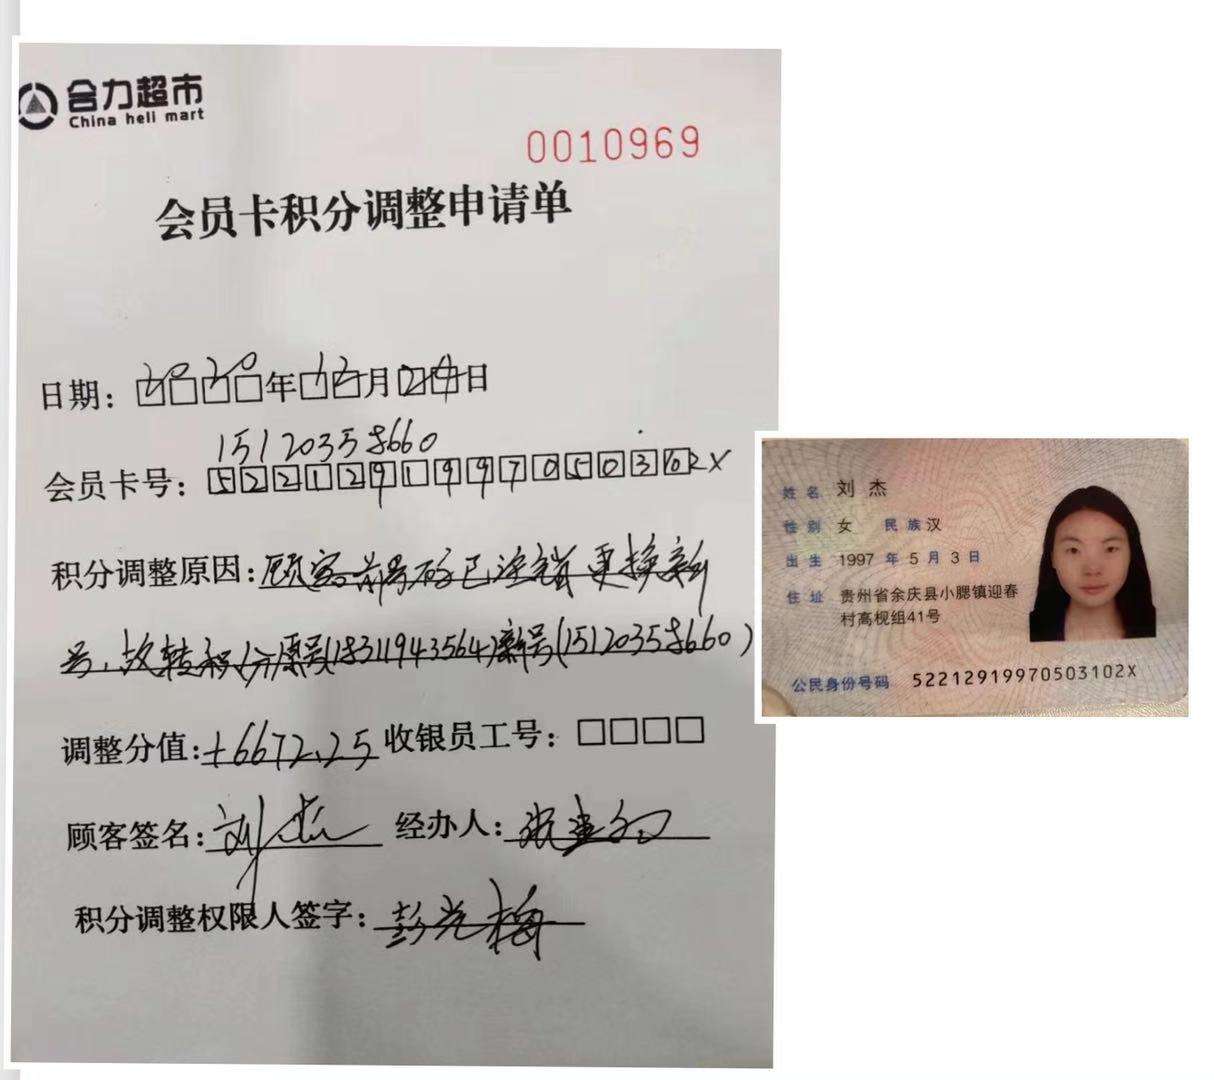 合力超市
China heli mart
0010969
会员卡积分调整申请单
日期：2020年12月24日
15120358660
会员卡号：52212919970503102X
积分调整原因：顾客前号码已注销更换新
号，故转积分原号(18311943564)新号(15120358660)
调整分值：+6672.25 收银员工号：□□□□
顾客签名：刘杰 经办人：
积分调整权限人签字：彭光梅
姓名 刘杰
性别 女 民族 汉
出生 1997 年 5 月 3 日
住址 贵州省余庆县小腮镇迎春
村高枧组41号
公民身份号码 52212919970503102X